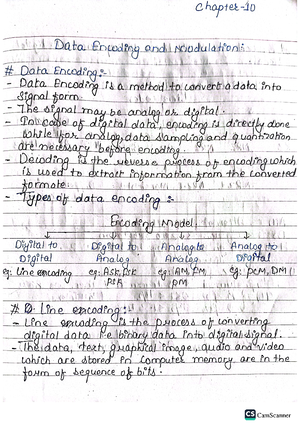 Chapter-10
Data Encoding and Modulation:
# Data Encoding:-
- Data Encoding is a method to convert a data into
signal form.
- The signal may be analog or digital.
- In case of digital data, encoding is directly done
while for analog, data sampling and quantization
are necessary before encoding.
- Decoding is the reverse process of encoding which
is used to extract information from the converted
formate.
- Types of data encoding :-
Encoding Model
Digital to Digital to Analog to Analog to
Digital Analog Analog Digital
eg: Line encoding eg: Ask, Fsk eg: AM, FM eg: PCM, DM
PSK PM
# Line encoding:-
- Line encoding is the process of converting
digital data i.e binary data into digital signal.
- The data, text, graphical image, audio and video
which are stored in computer memory are in the
form of sequence of bits.
CS CamScanner